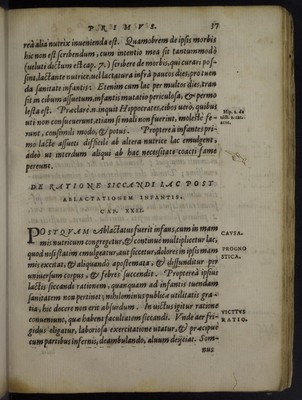 PRIMVS. 37
rea alia nutrix invenienda est. Quamobrem de ipsis morbis
hic non est scribendum, cum intentio mea sit tantummodo
(veluti dictum est cap. 7.) scribere de morbis, qui curari pos-
sint, lactante nutrice, vel lactatura infra paucos dies, pro tuen
da sanitate infantis: Etenim cum lac per multos dies, tran
sit in cibum assuetum, infantis mutatio periculosa, & permo
lesta est. Præclare n. inquit Hippocrates, cibos vero, quibus
uti non consueuerunt, etiam si mali non fuerint, moleste fe-
runt, consimili modo, & potus. Propterea infantes pri-
mo lacte assueti difficili ab altera nutrice lac emulgent,
adeo ut interdum aliqui ab hac necessitate tracti fame
pereunt.
Hip. 2. de
DE RATIONE SICCANDI LAC POST
ABLACTATIONEM INFANTIS.
CAP. XXXI.
POSTQVAM Ablactatus fuerit infans, cum in mam
mis nutricum congregetur, & continui multiplicetur lac,
quod nisi statim emulgatur, aut siccetur, dolores in ipsis mam
mis excitat, & aliquando apostemata, & diffunditur per
universum corpus, & febres succendit. Propterea ipsius
lactis siccandi rationem, quanquam ad infantis tuendam
sanitatem non pertinet; nihilominus publicæ utilitatis gra-
tia, hic docere non erit absurdum. In victus igitur ratione
conueniunt, quæ habent facultatem siccandi. Unde aer fri-
gidus eligatur, laboriosa exercitatione utatur, & præcipue
cum partibus infernis, deambulando, aluum deijciat. Som-
nus
CAVSA.
PROGNO
STICA.
VICTVS
RATIO.